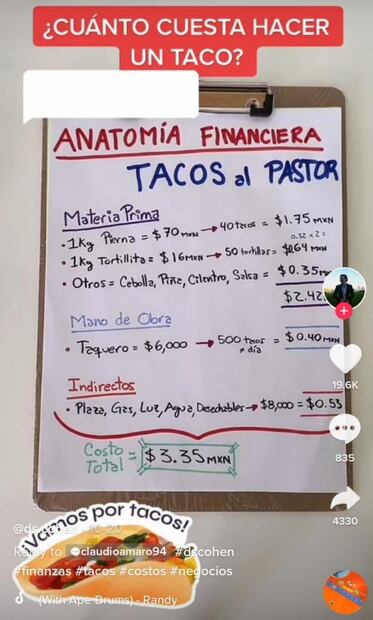 ¿CUÁNTO CUESTA HACER
UN TACO?
ANATOMÍA FINANCIERA
TACOS al PASTOR
Materia Prima
• 1Kg Pierna = $70 MXN → 40 tacos = $1.75 MXN
0.32 x 2 =
• 1Kg Tortillita = $16 MXN → 50 tortillas = $0.64 MXN
• Otros = Cebolla, Piña, Cilentro, Salsa = $0.35 m
$2.42
Mano de Obra
• Taquero = $6,000 → 500 tacos x día = $0.40 MXN
Indirectos
• Plaza, Gas, Luz, Agua, Desechables → $8,000 = $0.53
Costo Total = $3.35 MXN
19.6K
835
4330
¡Vamos por tacos!
@ds.cohen · 10-20
Reply to @claudioamaro94 #dscohen
#finanzas #tacos #costos #negocios
(With Ape Drums) - Randy